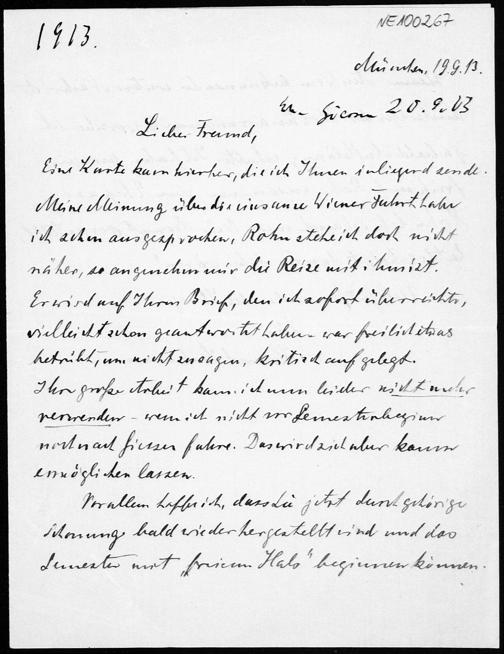 1913.
NE100267
München, 19.9.13.
20.9.13
Lieber Freund,
Eine Karte kam hierher, die ich Ihnen inliegend sende.
Meine Meinung über die einsame Wiener Fahrt habe
ich schon ausgesprochen, Rohn stehe ich doch nicht
näher, so angenehm mir die Reise mit ihm ist.
Er wird auf Ihren Brief, den ich sofort überreichte,
vielleicht schon geantwortet haben – war freilich etwas
betrübt, um nicht zu sagen, kritisch aufgelegt.
Ihre große Arbeit kann ich nun leider nicht mehr
verwenden – wenn ich nicht vor Semesterbeginn
noch nach Giessen fahre. Das wird sich aber kaum
ermöglichen lassen.
Vor allem hoffe ich, dass Sie jetzt durch gehörige
Schonung bald wiederhergestellt sind und das
Semester mit „freiem Hals" beginnen können.